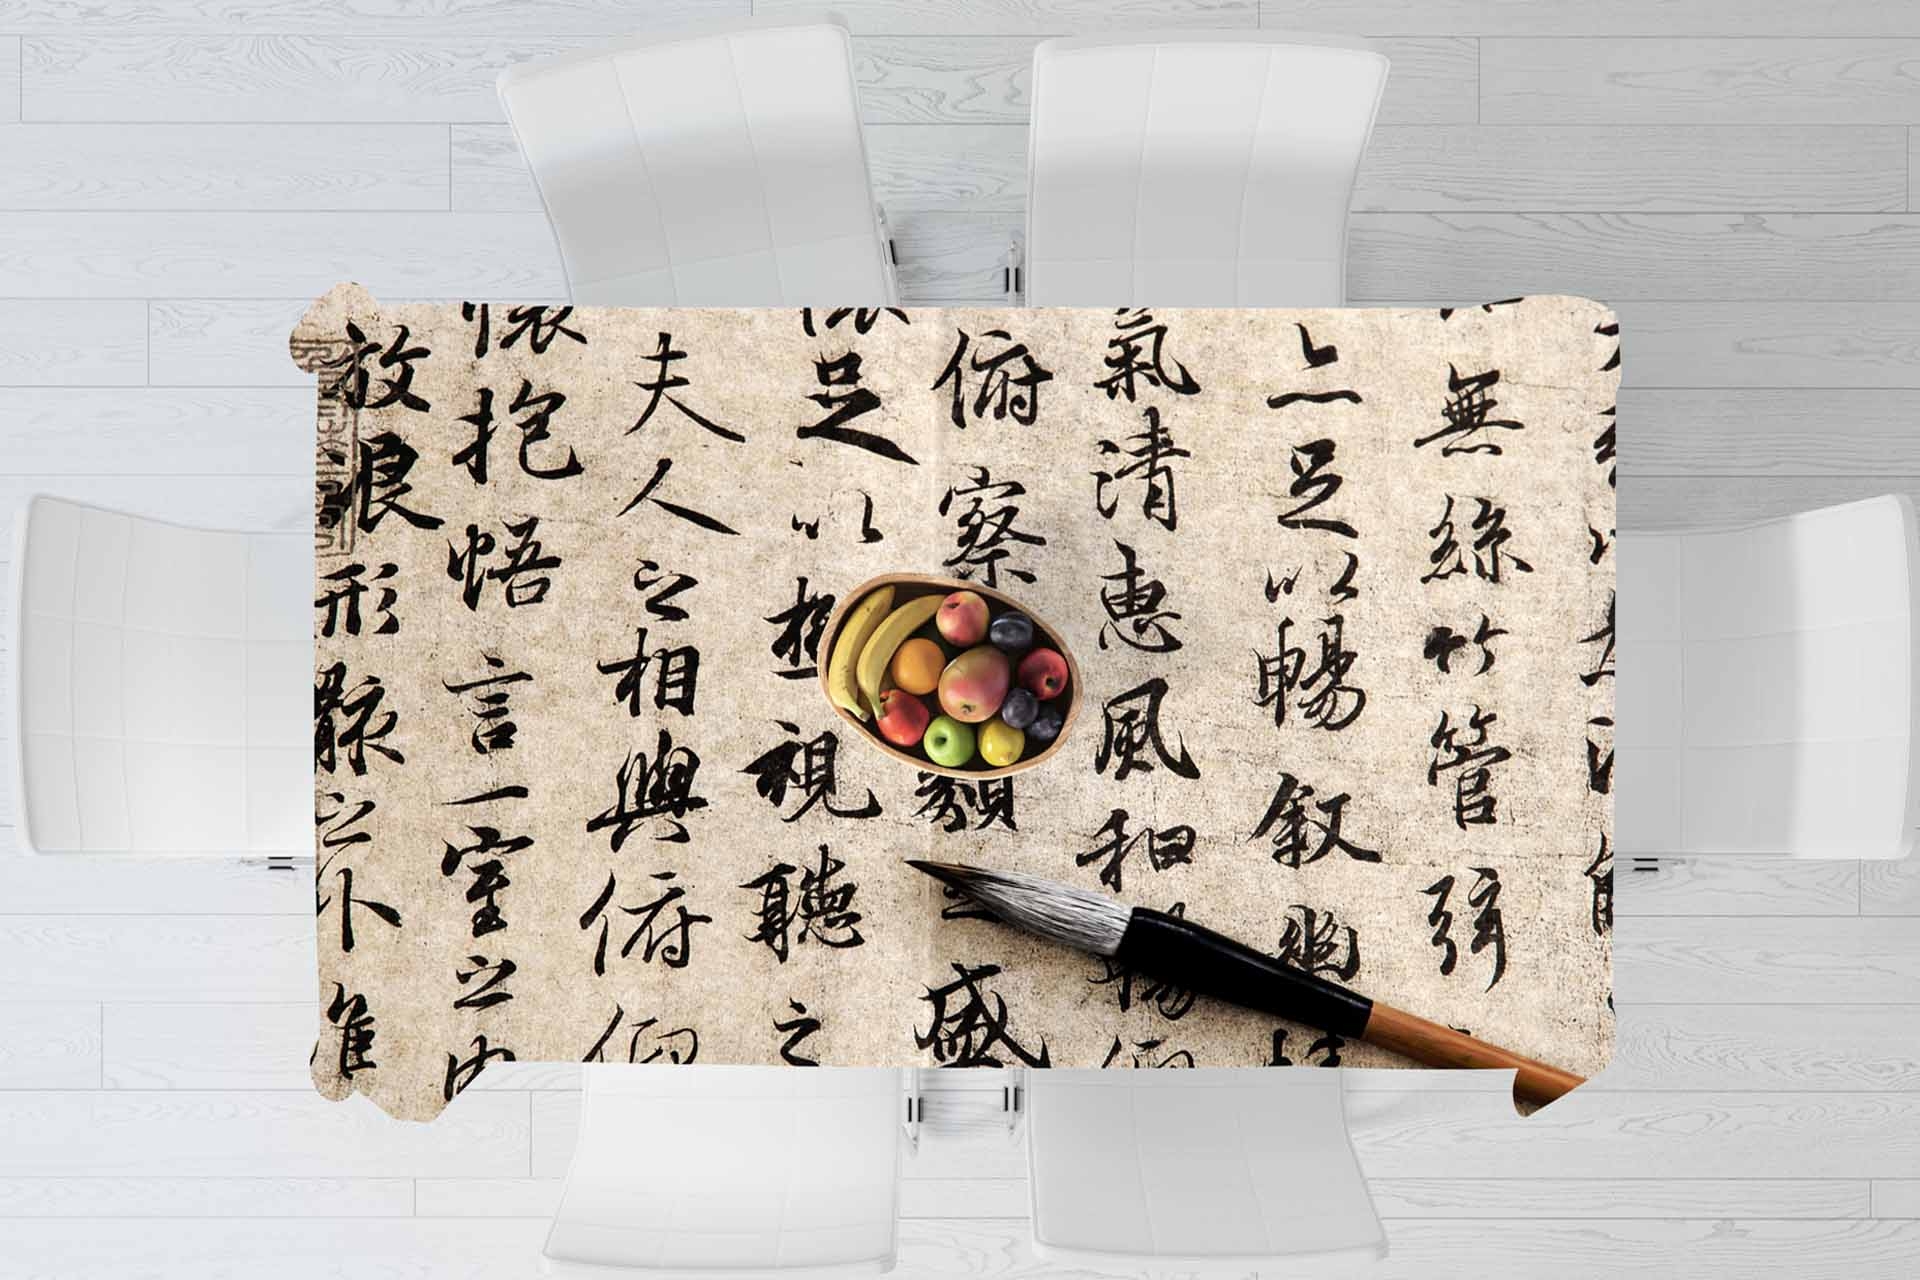 無絲竹管弦
亦足以暢叙幽
氣清惠風和暢仰
俯察類之盛
懷足以極視聽之
夫人之相與俯仰
懷抱悟言一室之內
放浪形骸之外雖